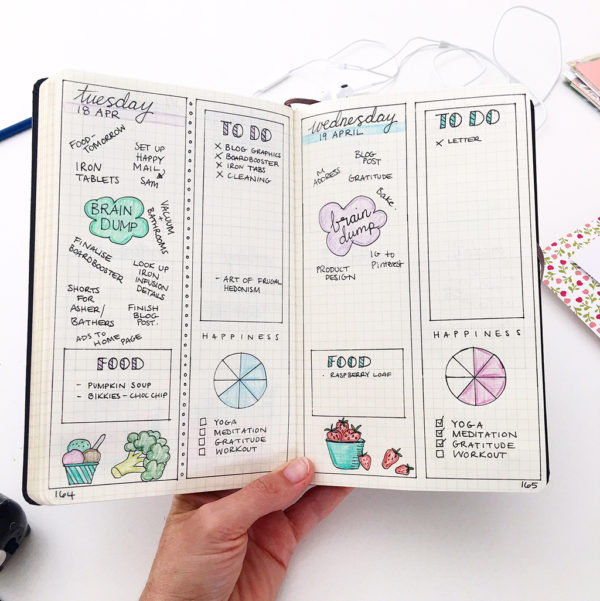 tuesday
18 APR
FOOD-
TOMORROW
SET UP
HAPPY
MAIL
SAM
IRON
TABLETS
BRAIN
DUMP
VACUUM
+
BATHROOMS
FINALISE
BOARDBOOSTER
LOOK UP
IRON
INFUSION
DETAILS
SHORTS
FOR
ASHER/
BATHERS
FINISH
BLOG
POST.
ADS TO
HOME PAGE
FOOD
- PUMPKIN SOUP
- BIKKIES - CHOC CHIP
164
TO DO
X BLOG GRAPHICS
X BOARDBOOSTER
X IRON TABS
X CLEANING
- ART OF FRUGAL
HEDONISM
HAPPINESS
YOGA
MEDITATION
GRATITUDE
WORKOUT
wednesday
19 APRIL
BLOG
POST
M
ADDRESS
GRATITUDE
Bake.
brain
dump
IG to
Pinterest
PRODUCT
DESIGN
FOOD
- RASPBERRY LOAF
TO DO
X LETTER
HAPPINESS
YOGA
MEDITATION
GRATITUDE
WORKOUT
165